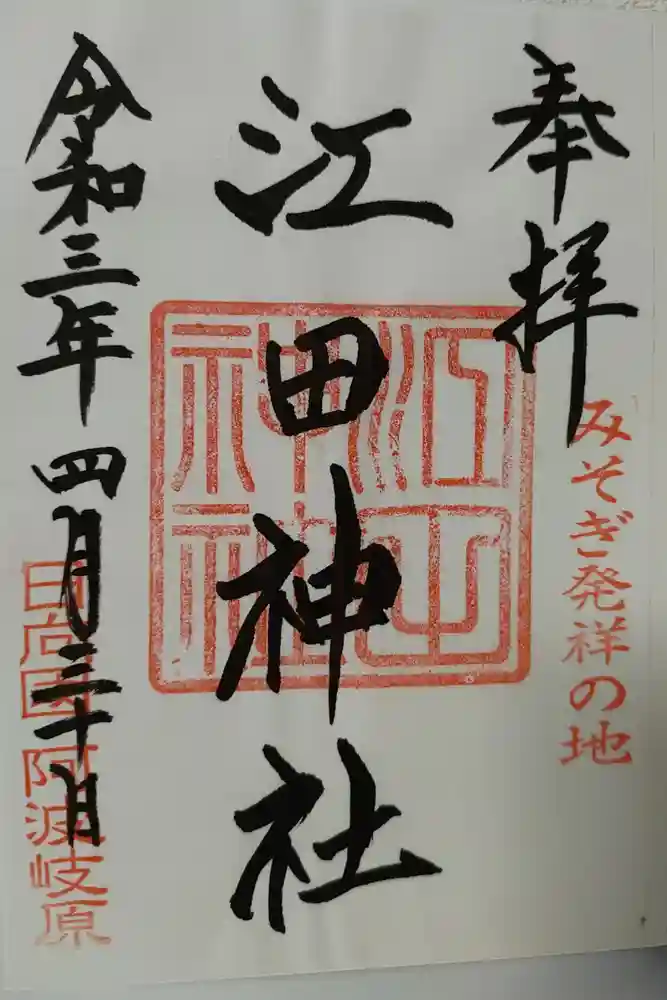 奉拝
みそぎ発祥の地
江田神社
江田
神社
令和三年四月三十日
日向國阿波岐原